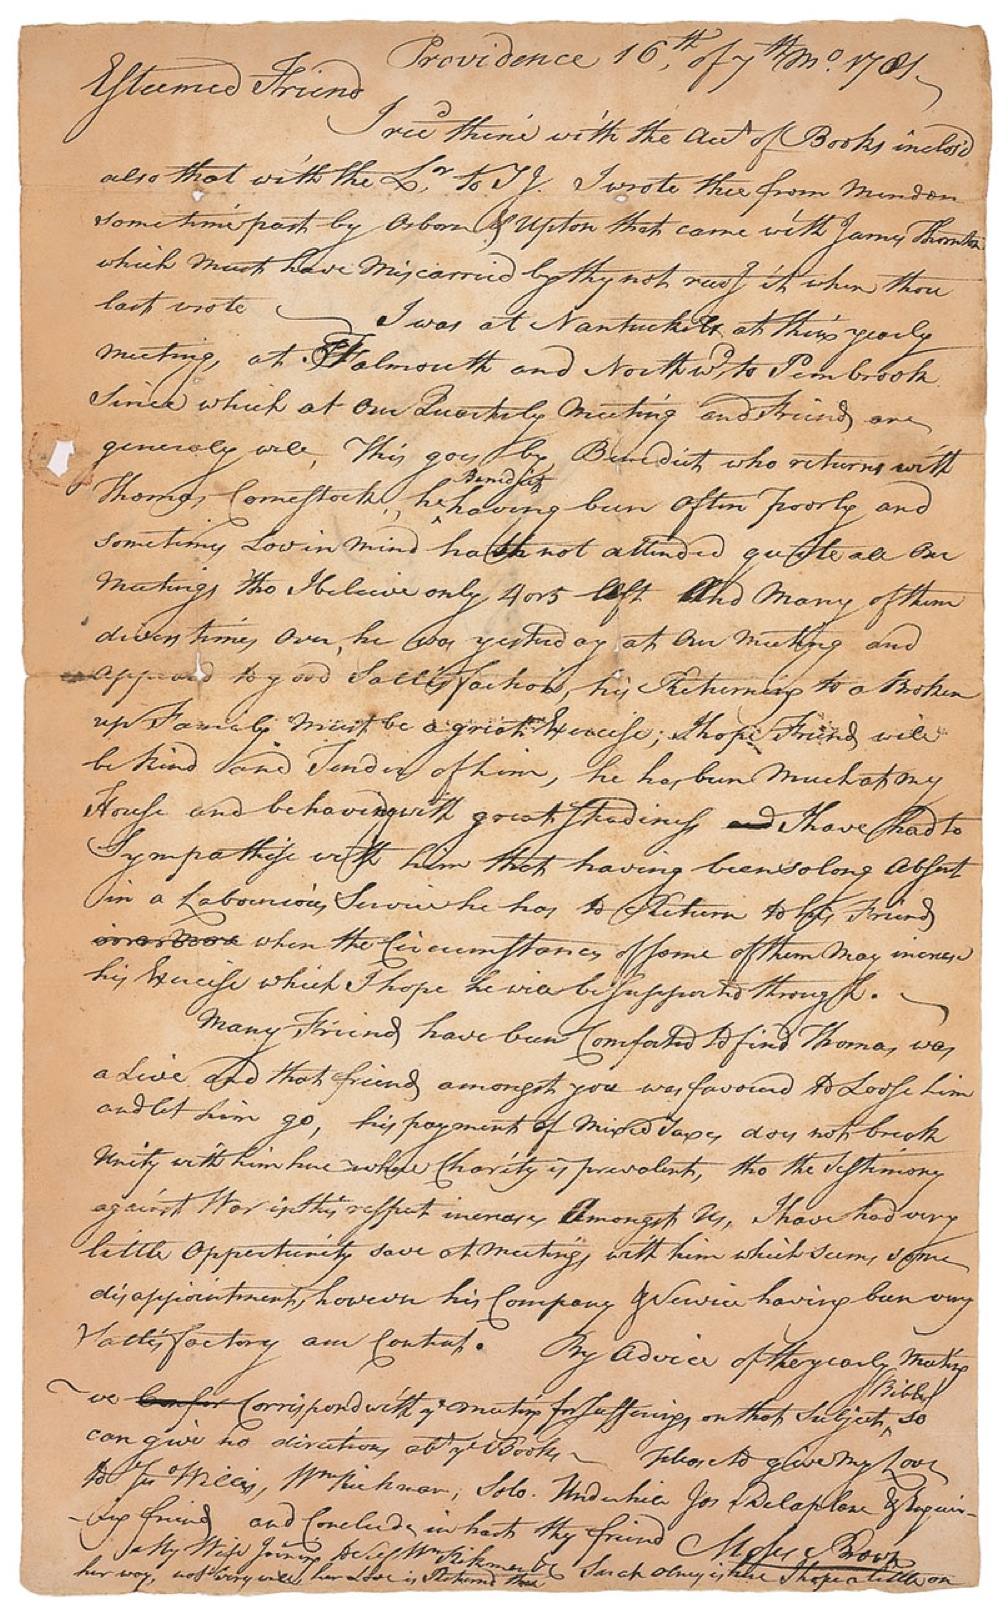 Providence 16th of 7th Mo. 1781
Esteemed Friend
I recd thine with the Acct of Books inclosd
also that with the Lr. to I J. I wrote thee from Mendon
sometime past by Osborn & Upton that came with James Thornton
which must have Miscarried by thy not recg it when thou
last wrote I was at Nantuckett at their yearly
Meeting, at Falmouth and Northwd to Pembrook
Since which at our Quarterly Meeting and Friends are
generaly well, This goes by Benedict who returns with
Thomas Comestock, he Benedict having been often poorly and
sometimes Low in mind hath not attended quite all our
Meetings tho I beleive only 4 or 5 left And Many of them
divers times over, he was yesterday at our Meeting and
appeard to good Sattisfaction, his Returning to a Broken
up Family must be a great Exercise; I hope Friends will
be kind and Tender of him, he has been Much at my
House and behaved with great Steadiness and I have had to
Sympathise with him that having been so long Absent
in a Labourious Service he has to Return to his Friends
when the Circumstances of some of them may increse
his Exercise which I hope he will be supported through.
Many Friends have been Comforted to find Thomas was
alive and that friends amongst you was favourd to Loose him
and let him go, his payment of Mixed Taxes does not break
Unity with him here where Charity is prevalent, tho the Testimony
against War in this respect increases Amongst us, I have had very
little Oppertunity save at Meetings with him which seems some
disappointment, however his Company & Service having been very
Sattisfactory am Content. By Advice of the yearly Meeting
we Correspond with ye meeting for Sufferings on that Subject, Bibles so
can give no directions abt ye Books Please to give my Love
to Willis, Wm Rickman, Solo. Underhill Jos Delaplane & Enquir-
ing friends and Conclude in hast thy friend Moses Brown
My Wife Joins to Self Wm Rikman & Sarah Olney is here I hope a little on
her way, not very well her Love is Returnd thee